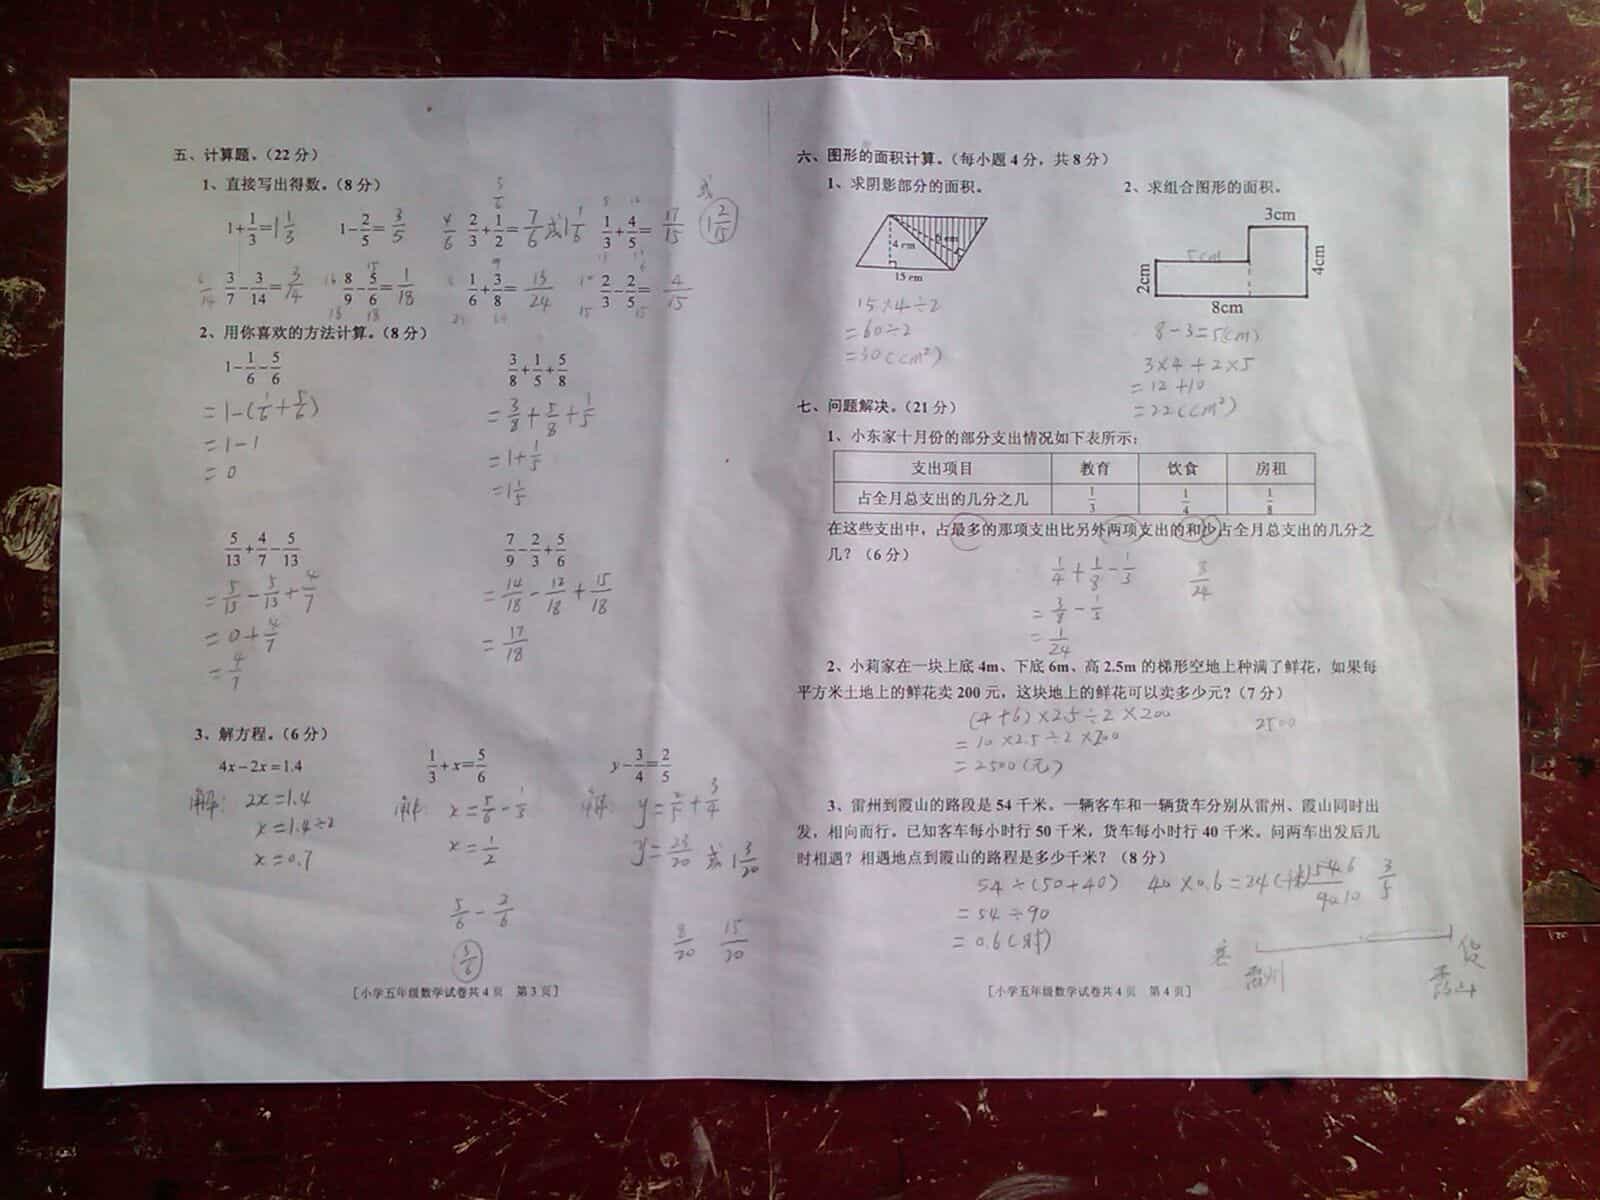 五、计算题。（22 分）
1、直接写出得数。（8 分）
1+1/3=1 1/3 1-2/5=3/5 2/3+1/2=7/6或1 1/6 1/3+4/5=17/15 或 1 2/15
3/7-3/14=3/14 8/9-5/6=1/18 1/6+3/8=13/24 2/3-2/5=4/15
2、用你喜欢的方法计算。（8 分）
1-1/6-5/6
=1-(1/6+5/6)
=1-1
=0
3/8+1/5+5/8
=3/8+5/8+1/5
=1+1/5
=1 1/5
5/13+4/7-5/13
=5/13-5/13+4/7
=0+4/7
=4/7
7/9-2/3+5/6
=14/18-12/18+15/18
=17/18
3、解方程。（6 分）
4x-2x=1.4
解: 2x=1.4
x=1.4÷2
x=0.7
1/3+x=5/6
解: x=5/6-1/3
x=1/2
5/6-2/6
3/6
y-3/4=2/5
解: y=2/5+3/4
y=23/20 或 1 3/20
8/20 15/20
［小学五年级数学试卷共 4 页 第 3 页］
六、图形的面积计算。（每小题 4 分，共 8 分）
1、求阴影部分的面积。
4 cm
15 cm
15×4÷2
=60÷2
=30(cm²)
2、求组合图形的面积。
3cm
5cm
4cm
2cm
8cm
8-3=5(cm)
3×4+2×5
=12+10
=22(cm²)
七、问题解决。（21 分）
1、小东家十月份的部分支出情况如下表所示：
支出项目 教育 饮食 房租
占全月总支出的几分之几 1/3 1/4 1/8
在这些支出中，占最多的那项支出比另外两项支出的和少占全月总支出的几分之
几？（6 分）
1/4+1/8-1/3
=3/8-1/3
=1/24
2、小莉家在一块上底 4m、下底 6m、高 2.5m 的梯形空地上种满了鲜花，如果每
平方米土地上的鲜花卖 200 元，这块地上的鲜花可以卖多少元？（7 分）
(4+6)×2.5÷2×200 2500
=10×2.5÷2×200
=2500(元)
3、雷州到霞山的路段是 54 千米。一辆客车和一辆货车分别从雷州、霞山同时出
发，相向而行。已知客车每小时行 50 千米，货车每小时行 40 千米。问两车出发后几
时相遇？相遇地点到霞山的路程是多少千米？（8 分）
54÷(50+40) 40×0.6=24(千米) 3/5
=54÷90
=0.6(时)
客 货
雷州 霞山
［小学五年级数学试卷共 4 页 第 4 页］